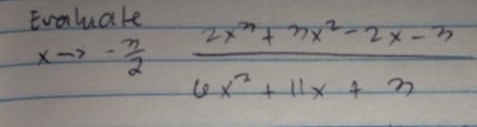 Evaluate
x → -3/2  (2x³ + 3x² - 2x - 3) / (6x² + 11x + 3)